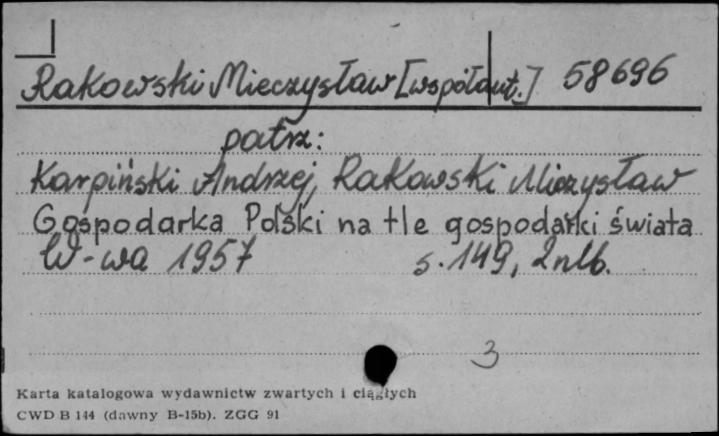 Rakowski Mieczysław [współaut.] 58696
patrz:
Karpiński Andrzej, Rakowski Mieczysław
Gospodarka Polski na tle gospodarki świata
W-wa 1957 s. 149, 2nlb.
3
Karta katalogowa wydawnictw zwartych i ciągłych
CWD B 144 (dawny B-15b). ZGG 91